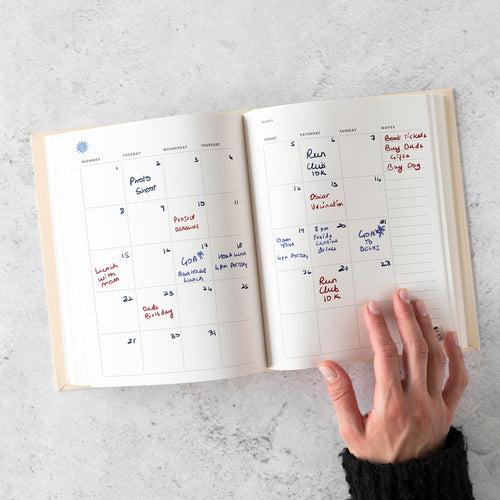 MONDAY TUESDAY WEDNESDAY THURSDAY
1 2 3 4
Photo
Shoot
8 9 10 11
Project
Deadline
15 16 17 18
Lunch
with
mom
GOA
Lunch
22 23 24 25
Dad's
Birthday
30 31
SATURDAY SUNDAY NOTES
5 6 7
Run
Club
10K
Book Tickets
Buy Dads
Gifts
Buy Dog
12 13 14
Oscar
Vaccination
19 20 21
10am
Yoga
8pm
Drinks
GOA
TO
DELHI
26 28
Run
Club
10K